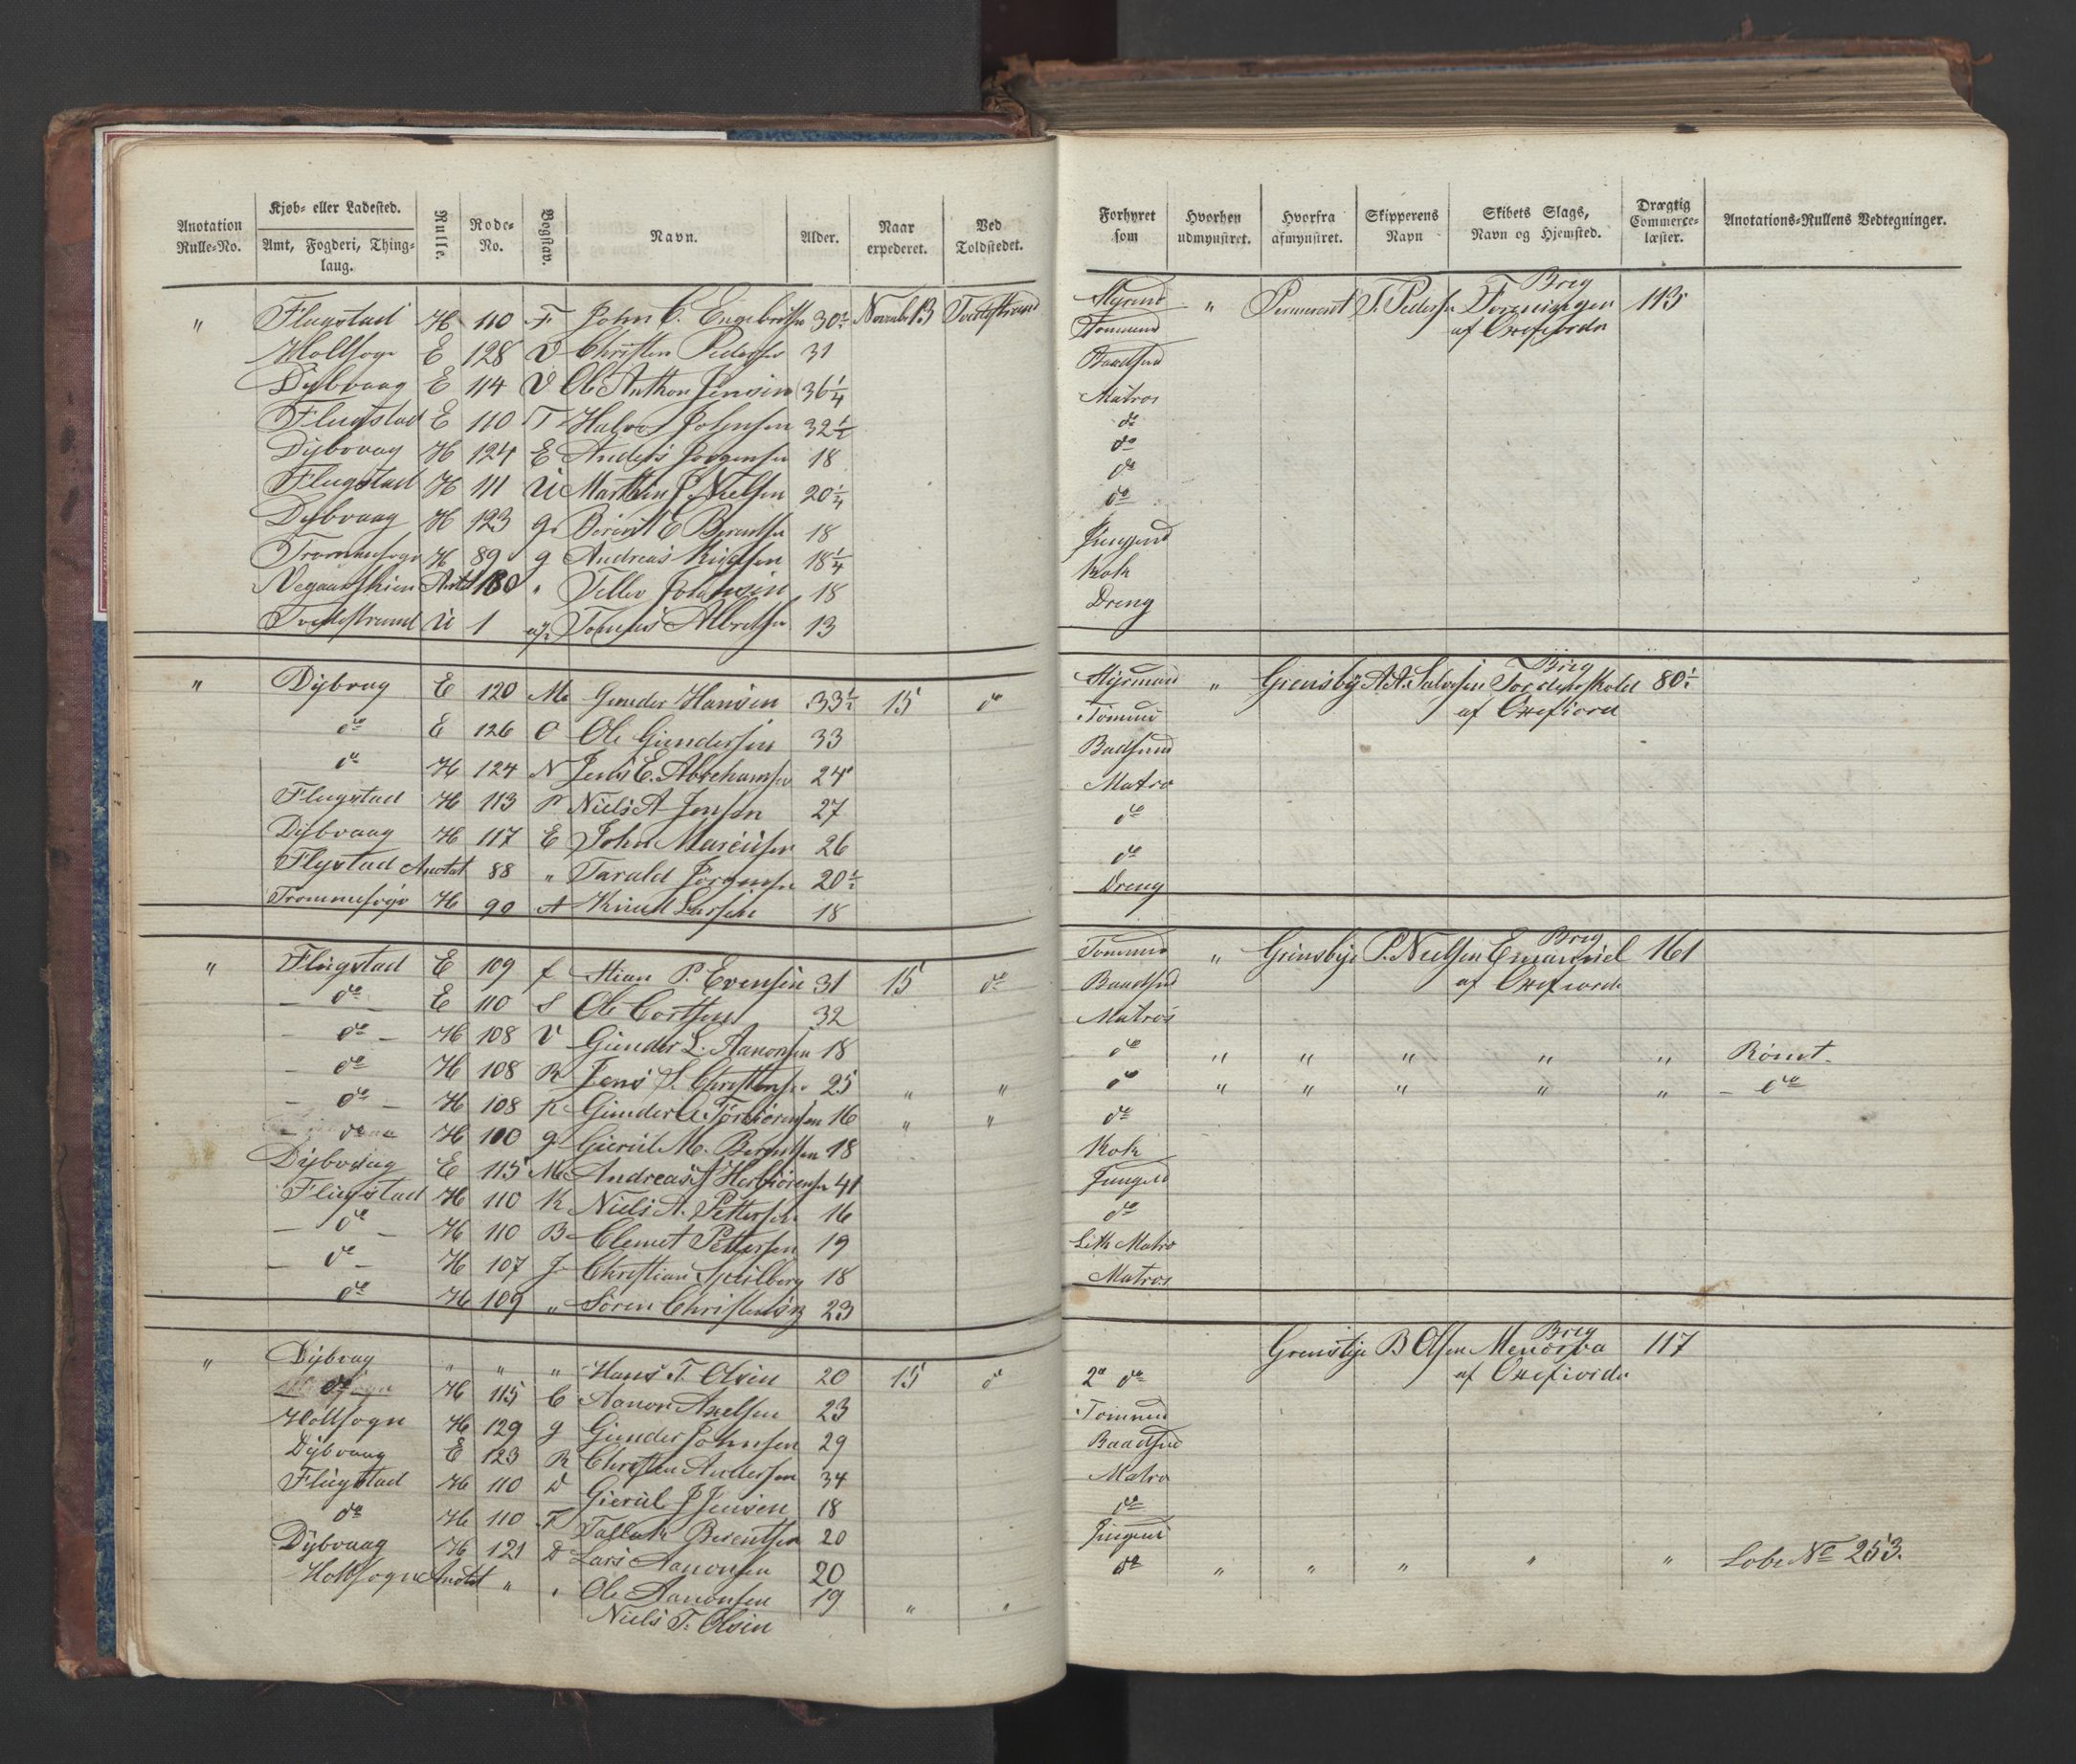 Anotation Rulle-No.
Kjøb- eller Ladested.
Amt, Fogderi, Thinglaug.
Rulle.
Rode-No.
Bogstav.
Navn.
Alder.
Naar expederet.
Ved Toldstedet.
" Flugstad H 110 F John C. Engebritsen 30½ Novembr 13 Tvedestrand
Holtsogn E 128 V Christen Pedersen 31
Dybvaag E 114 V Ole Anthon Jensen 36¼
Flugstad E 110 T Halvor Johnsen 32½
Dybvaag H 124 E Anders Jørgensen 18
Flugstad H 111 U Marthin J. Nielsen 20¼
Dybvaag H 123 g Berent E Berentsen 18
Trommesogn H 89 g Andreas Knudsen 18¼
Anott 180 " Tellev Johnsen 18
Tvedestrand U 1 Tomas Albretsen 13
" Dybvag E 120 M Gunder Hansen 33½ 15 do
do E 126 O Ole Gundersen 33
do H 124 N Jens E. Abrahamsen 24
Flugstad H 113 P Niels A Jensen 27
Dybvaag H 117 E John Marcusen 26
Flugstad Anotat 88 " Tarald Jörgensen 20½
Trommesogn H 90 A Knud Larsen 18
" Flugstad E 109 f Stian P. Evensen 31 15 do
do E 110 S Ole Cortsen 32
do H 108 V Gunder L. Aanonsen 18
do H 108 R Jens S. Christensen 25 " "
do H 108 K Gunder A. Törbiörensen 16 " "
do H 100 g Gierul M. Berntsen 18
Dybvaag E 115 M Andreas J Herbiörensen 41
Flugstad H 110 K Niels A. Pettersen 16
do H 110 B Clemet Pettersen 19
do H 107 J Christian 18
do H 109 " Sören Christensen 23
" Dybvag " " " Hans T. Olsen 20 15 do
do H 115 C Aanon Axelsen 23
Holtsogn H 129 g Gunder Johnsen 29
Dybvaag E 123 R Christen Andersen 34
Flugstad H 110 D Gierul J Jensen 18
do H 110 F Tallak Berentsen 20
Dybvaag H 121 D Lars Aanonsen 20
Holtsogn Anotat " " Ole Aanonsen 19 " "
Niels T. Olsen
Forhyret som
Hvorhen udmynstret.
Hvorfra afmynstret.
Skipperens Navn
Skibets Slags, Navn og Hjemsted.
Drægtig Commerce-læster.
Anotations-Rullens Vedtegninger.
Brig
Styrmd " T. Pedersen Foreningen 113
Tommermd af Oxefiorden
Baadsmd
Matros
do
do
do
do
Jungmd
Kok
Dreng
Brig
Styrmand " Grensby A. A. Salvesen Tordenskold 80½
Tömmrmd af Oxefiord
Badsmd
Matro
do
do
Dreng
Brig
Tommrmd " Grimsbye P. Nielsen Emanuel 161
Baadsmd af Oxefiorde
Matros
do " " " " " Römt.
do " " " " " do
do
Kok
Jungmd
do
Leth Matro
Matros
Brig
Grensbye B Olsen Menerva 117
2 do af Oxefiorde
Tömmrmd
Baadsmd
Matro
do
Jungmd
do " " " " " Lobe No 253.